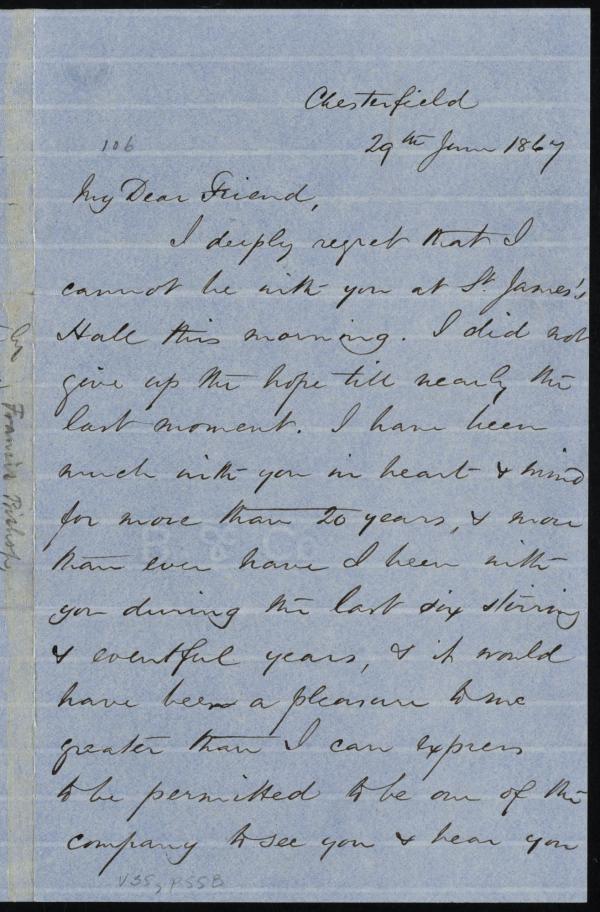 Chesterfield
106
29th June 1867
My Dear Friend,
I deeply regret that I
cannot be with you at St James's
Hall this morning. I did not
give up the hope till nearly the
last moment. I have been
much with you in heart & mind
for more than 20 years, & more
than ever have I been with
you during the last six stirring
& eventful years, & it would
have been a pleasure to me
greater than I can express
to be permitted to be one of the
company to see you & hear you
V.35, p.55B
Francis Bishop
B & Co